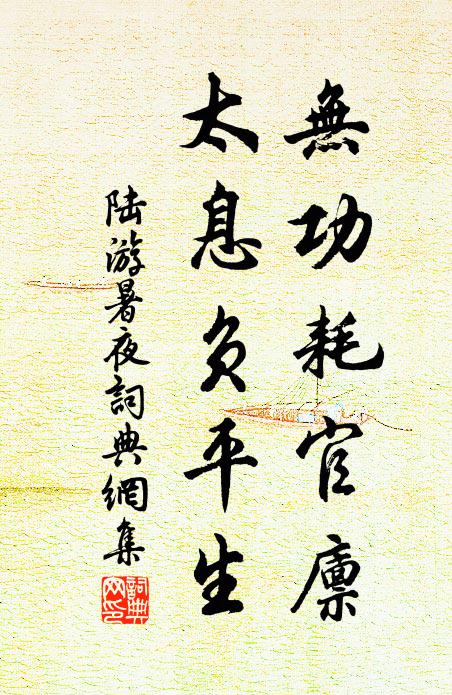 無功耗官廪
太息負平生
陆游暑夜詞典網集
詞典
网印